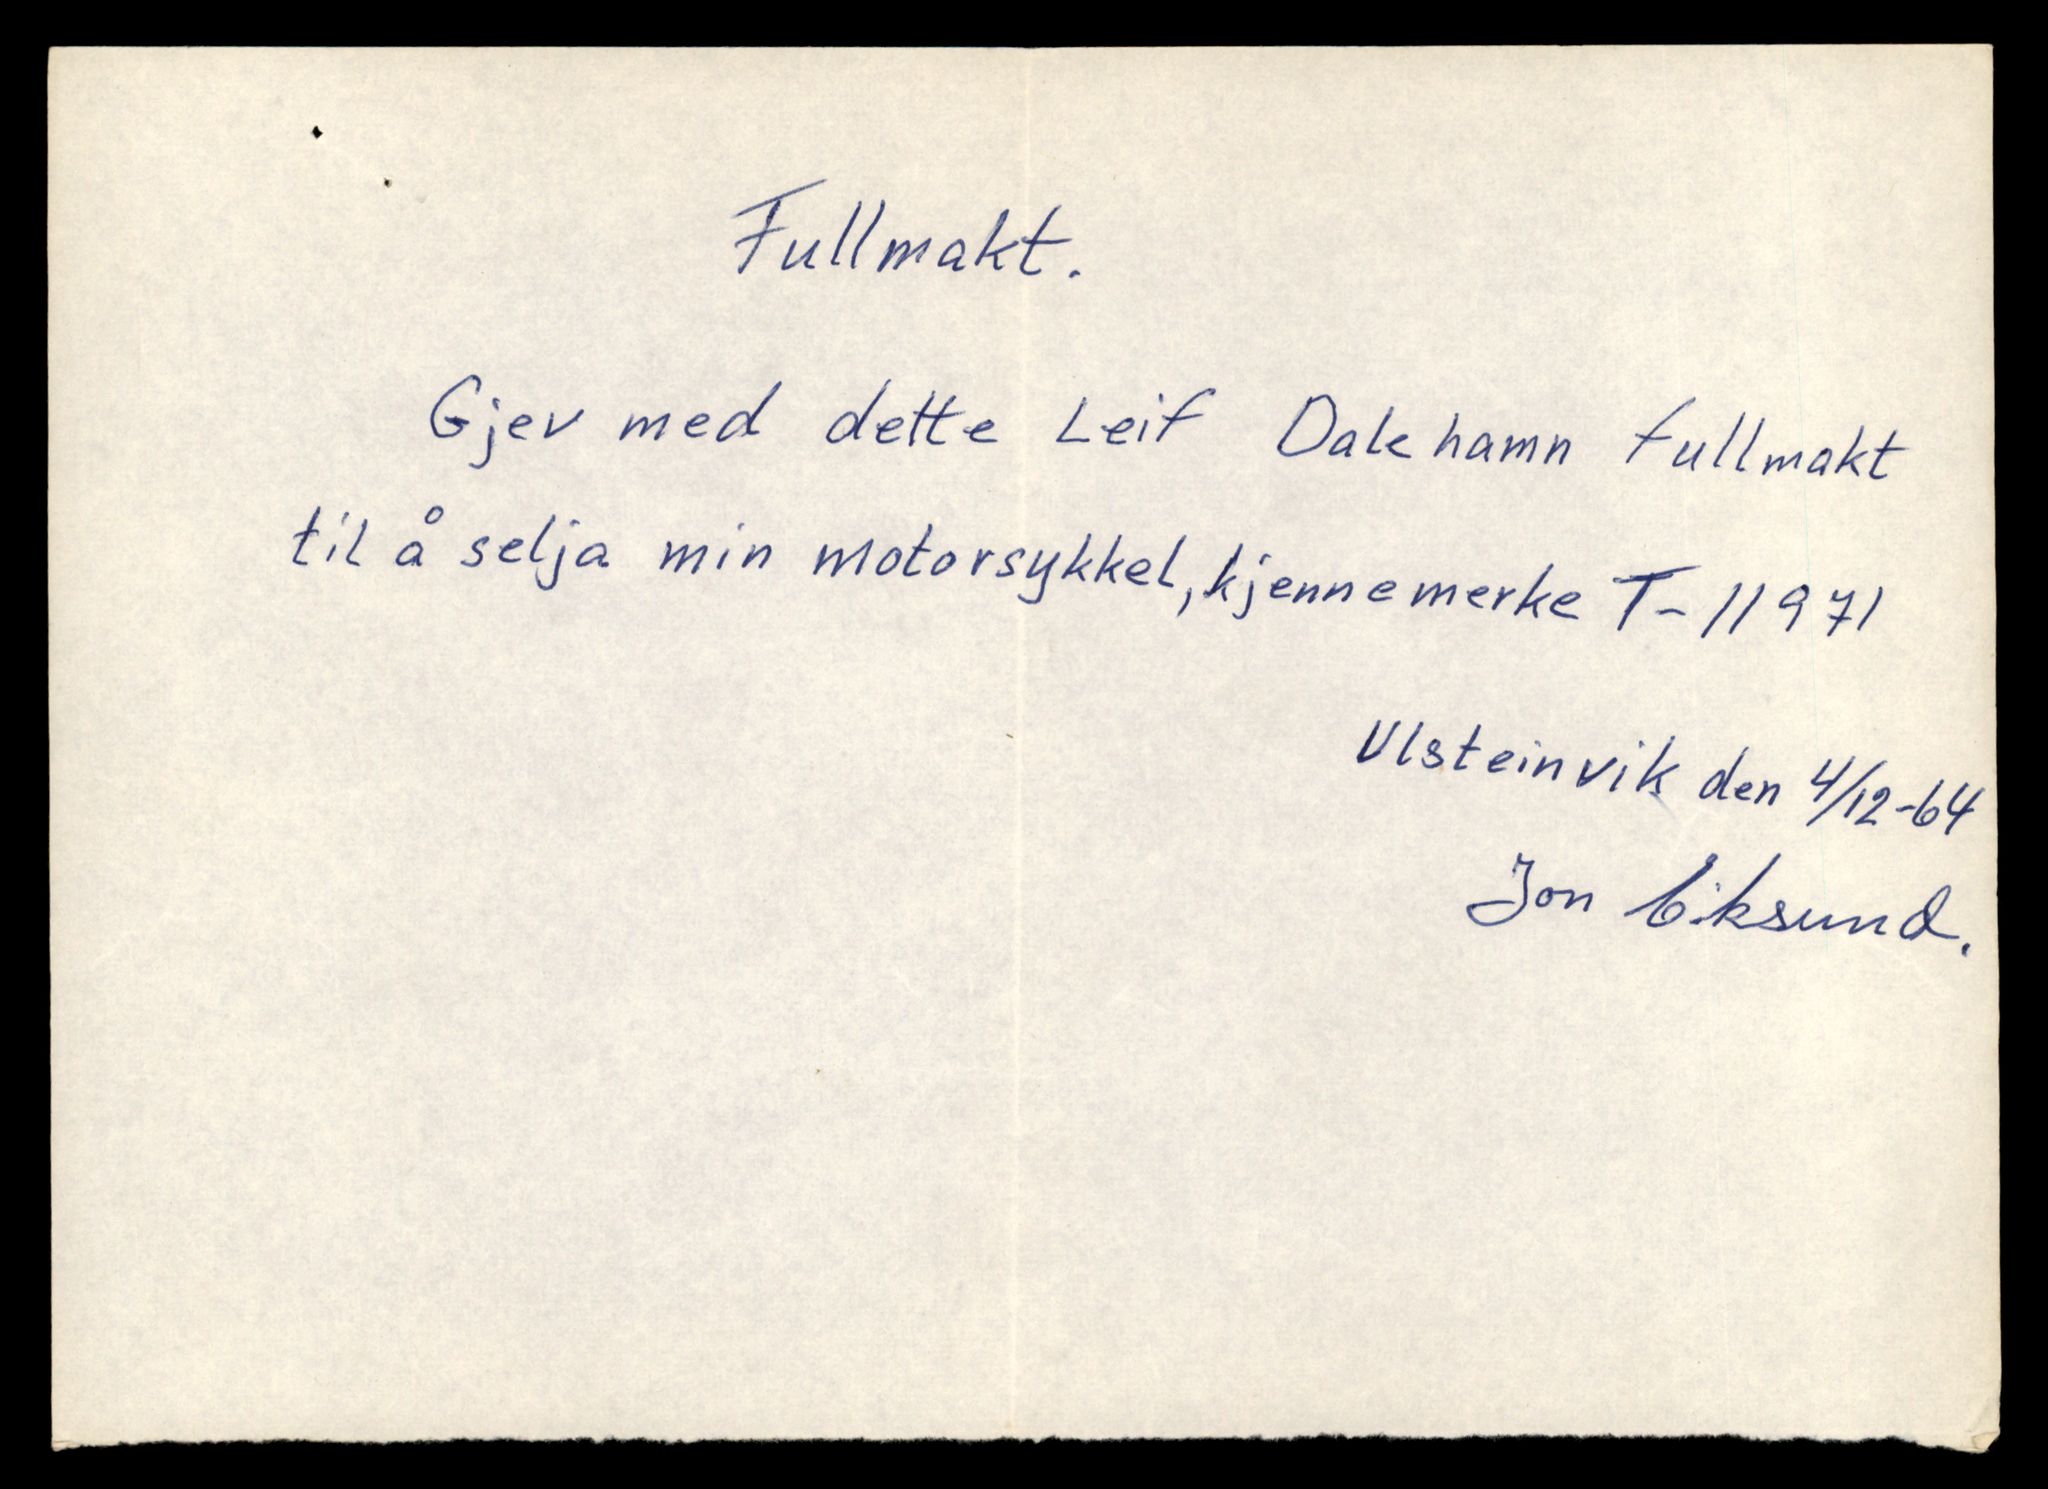 Fullmakt.
Gjev med dette Leif Dalehamn fullmakt
til å selja min motorsykkel, kjennemerke T-11971
Ulsteinvik den 4/12-64
Jon Eiksund.